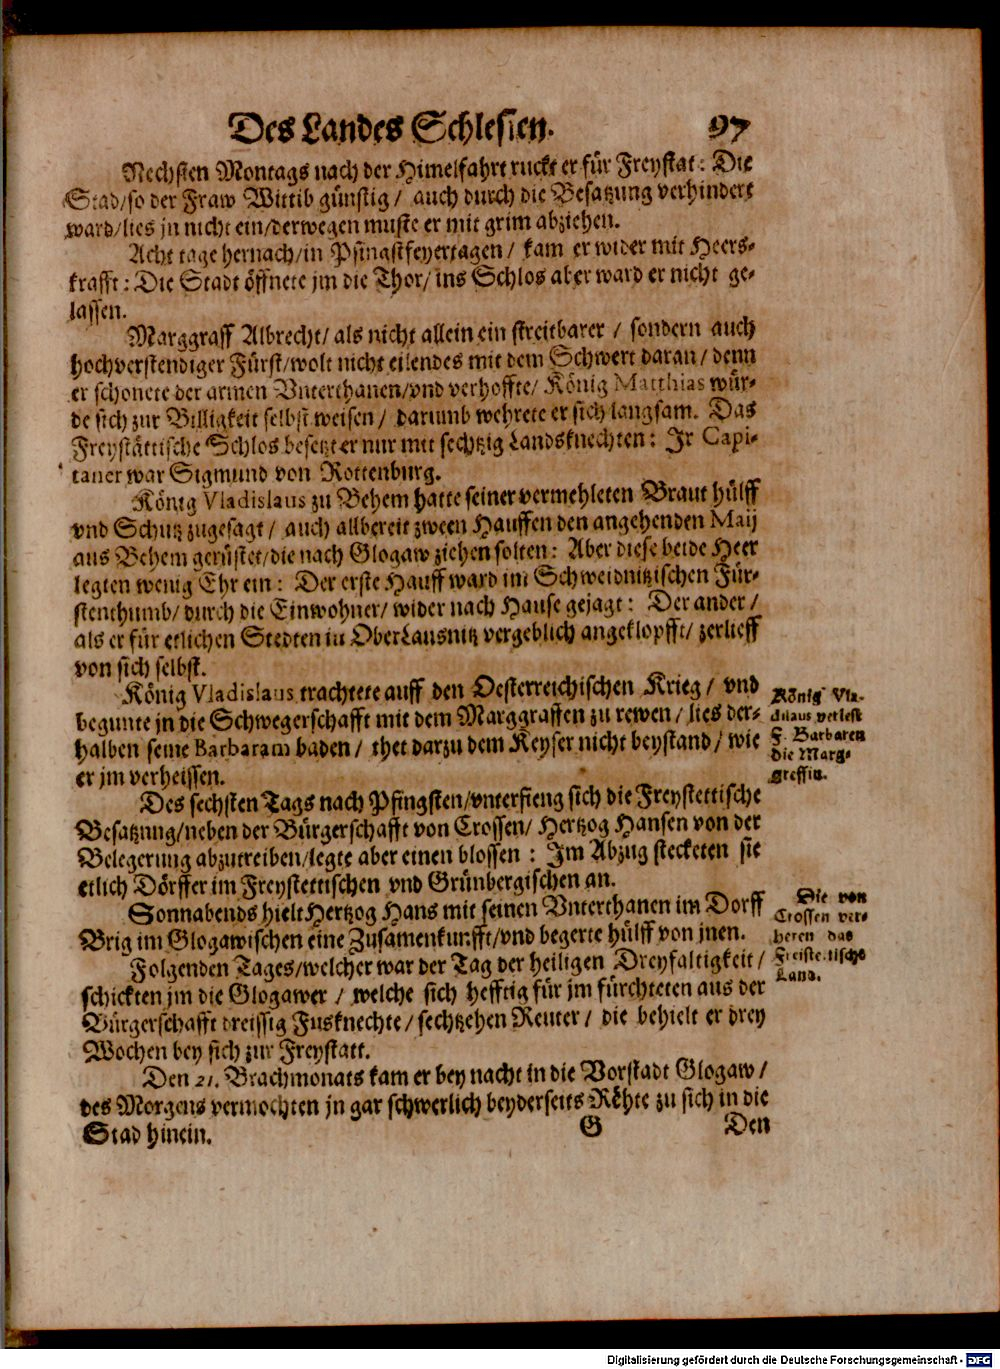 Des Landes Schlesien. 97
Nechsten Montags nach der Himelfahrt ruckt er für Freystat: Die
Stad/so der Fraw Wittib günstig/ auch durch die Besatzung verhindert
ward/lies jn nicht ein/derwegen muste er mit grim abziehen.
Acht tage hernach/in Pfingstfeyertagen/ kam er wider mit Heers-
krafft: Die Stadt öffnete jm die Thor/ ins Schlos aber ward er nicht ge-
lassen.
Marggraff Albrecht/ als nicht allein ein streitbarer / sondern auch
hochverstendiger Fürst/wolt nicht eilendes mit dem Schwert daran/ denn
er schonete der armen Vnterthanen/vnd verhoffte/ König Matthias wür-
de sich zur Billigkeit selbst weisen / darumb wehrete er sich langsam. Das
Freystättische Schlos besetzt er nur mit sechtzig Landsknechten: Jr Capi-
taner war Sigmund von Rottenburg.
König Vladislaus zu Behem hatte seiner vermehleten Braut hülff
vnd Schutz zugesagt / auch allbereit zween Hauffen den angehenden Maij
aus Behem gerüstet/die nach Glogaw ziehen solten: Aber diese beide Heer
legten wenig Ehr ein: Der erste Hauff ward im Schweidnitzischen Für-
stenthumb/ durch die Einwohner/ wider nach Hause gejagt: Der ander /
als er für etlichen Stedten in OberLausnitz vergeblich angeklopfft/ zerlieff
von sich selbst.
König Vladislaus trachtete auff den Oesterreichischen Krieg/ vnd
begunte jn die Schwegerschafft mit dem Marggraffen zu rewen/ lies der-
halben seine Barbaram baden/ thet darzu dem Keyser nicht beystand/ wie
er jm verheissen.
König Vla-
dislaus verlest
F. Barbaren
die Marg-
greffin.
Des sechsten Tags nach Pfingsten/vnterfieng sich die Freystettische
Besatzung/neben der Bürgerschafft von Crossen/ Hertzog Hansen von der
Belegerung abzutreiben/legte aber einen blossen: Im Abzug stecketen sie
etlich Dörffer im Freystettischen vnd Grünbergischen an.
Sonnabends hielt Hertzog Hans mit seinen Vnterthanen im Dorff
Brig im Glogawischen eine Zusamenkunfft/vnd begerte hülff von jnen.
Die von
Crossen ver-
heren das
Freistetische
Land.
Folgenden Tages/welcher war der Tag der heiligen Dreyfaltigkeit/
schickten jm die Glogawer / welche sich hefftig für jm fürchteten aus der
Bürgerschafft dreissig Fusknechte/ sechtzehen Reuter/ die behielt er drey
Wochen bey sich zur Freystatt.
Den 21. Brachmonats kam er bey nacht in die Vorstadt Glogaw/
des Morgens vermochten jn gar schwerlich beyderseits Rähte zu sich in die
Stad hinein.
G Den
Digitalisierung gefördert durch die Deutsche Forschungsgemeinschaft - DFG